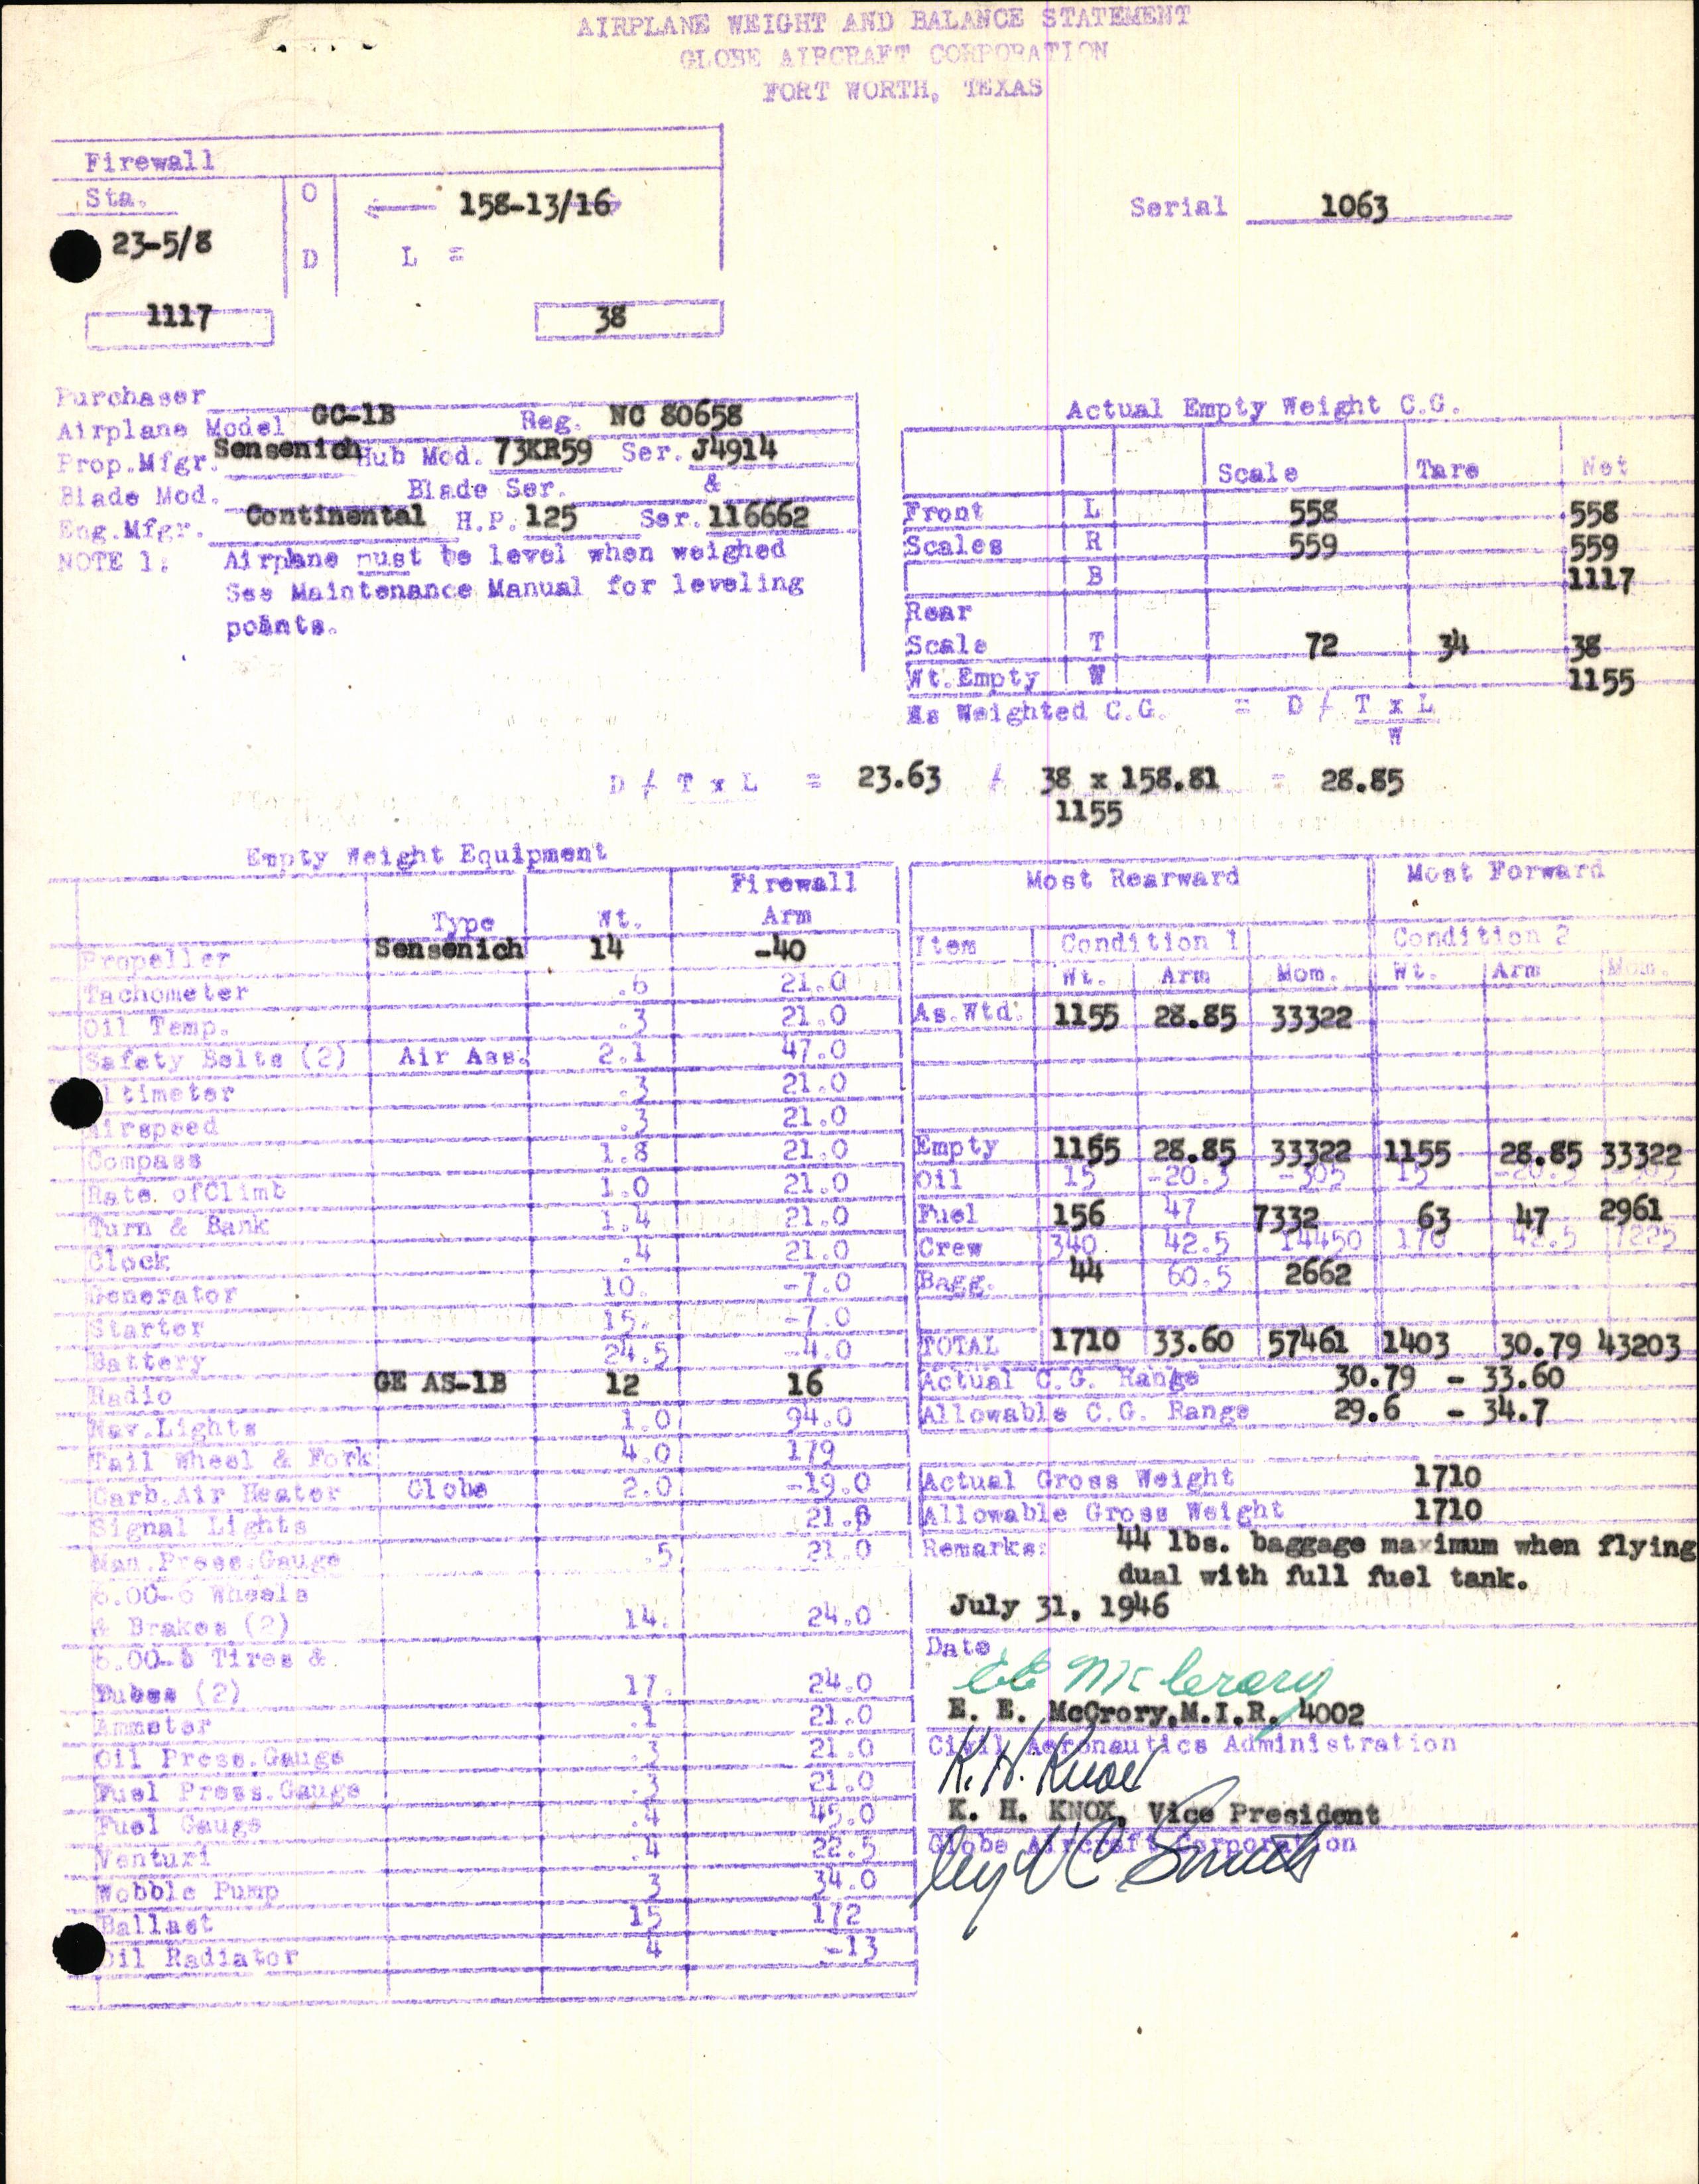 AIRPLANE WEIGHT AND BALANCE STATEMENT
GLOBE AIRCRAFT CORPORATION
FORT WORTH, TEXAS
Firewall
Sta. O 158-13/16
23-5/8 D L =
Serial 1063
1117 38
Purchaser
Airplane Model GC-1B Reg. NC 80658
Prop.Mfgr. Sensenich Hub Mod. 73KR59 Ser. J4914
Blade Mod. Blade Ser. &
Eng.Mfgr. Continental H.P. 125 Ser. 116662
NOTE 1: Airplane must be level when weighed
See Maintenance Manual for leveling
points.
Actual Empty Weight C.G.
Scale Tare Net
Front L 558 558
Scales R 559 559
B 1117
Rear
Scale T 72 34 38
Wt.Empty W 1155
As Weighted C.G. = D / T x L
W
D / T x L = 23.63 / 38 x 158.81 = 28.85
1155
Empty Weight Equipment
Type Wt. Firewall Arm
Propeller Sensenich 14 -40
Tachometer .6 21.0
Oil Temp. .3 21.0
Safety Belts (2) Air Ass. 2.1 47.0
ltimeter .3 21.0
Airspeed .3 21.0
Compass 1.8 21.0
Rate ofClimb 1.0 21.0
Turn & Bank 1.4 21.0
Clock .4 21.0
Generator 10. -7.0
Starter 15. -7.0
Battery 24.5 -4.0
Radio GE AS-1B 12 16
Nav.Lights 1.0 94.0
Tail Wheel & Fork 4.0 179
Carb.Air Heater Globe 2.0 -19.0
Signal Lights 21.0
Man.Press.Gauge .5 21.0
6.00-6 Wheels
& Brakes (2) 14. 24.0
6.00-6 Tires &
Tubes (2) 17. 24.0
Ammeter .1 21.0
Oil Press.Gauge .3 21.0
Fuel Press.Gauge .3 21.0
Fuel Gauge .4 45.0
Venturi .4 22.5
Wobble Pump 3 34.0
Ballast 15 172
Oil Radiator 4 -13
Most Rearward Most Forward
Item Condition 1 Condition 2
Wt. Arm Mom. Wt. Arm Mom.
As.Wtd. 1155 28.85 33322
Empty 1155 28.85 33322 1155 28.85 33322
Oil 15 -20.3 -305 15 -20.3
Fuel 156 47 7332 63 47 2961
Crew 340 42.5 14450 170 42.5 7225
Bagg. 44 60.5 2662
TOTAL 1710 33.60 57461 1403 30.79 43203
Actual C.G. Range 30.79 - 33.60
Allowable C.G. Range 29.6 - 34.7
Actual Gross Weight 1710
Allowable Gross Weight 1710
Remarks: 44 lbs. baggage maximum when flying
dual with full fuel tank.
July 31, 1946
Date
EE McCrory
E. E. McCrory,M.I.R. 4002
Civil Aeronautics Administration
K. H. Knox
K. H. KNOX, Vice President
Globe Aircraft Corporation